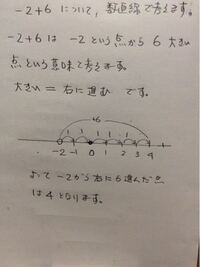 -2+6 について、数直線で考えます。
-2+6 は -2 という点から 6 大きい
点という意味で考えます。
大きい = 右に進む です。
+6
1 1 1 1 1 1
-2 -1 0 1 2 3 4
よって -2から右に6進んだ点
は4となります。